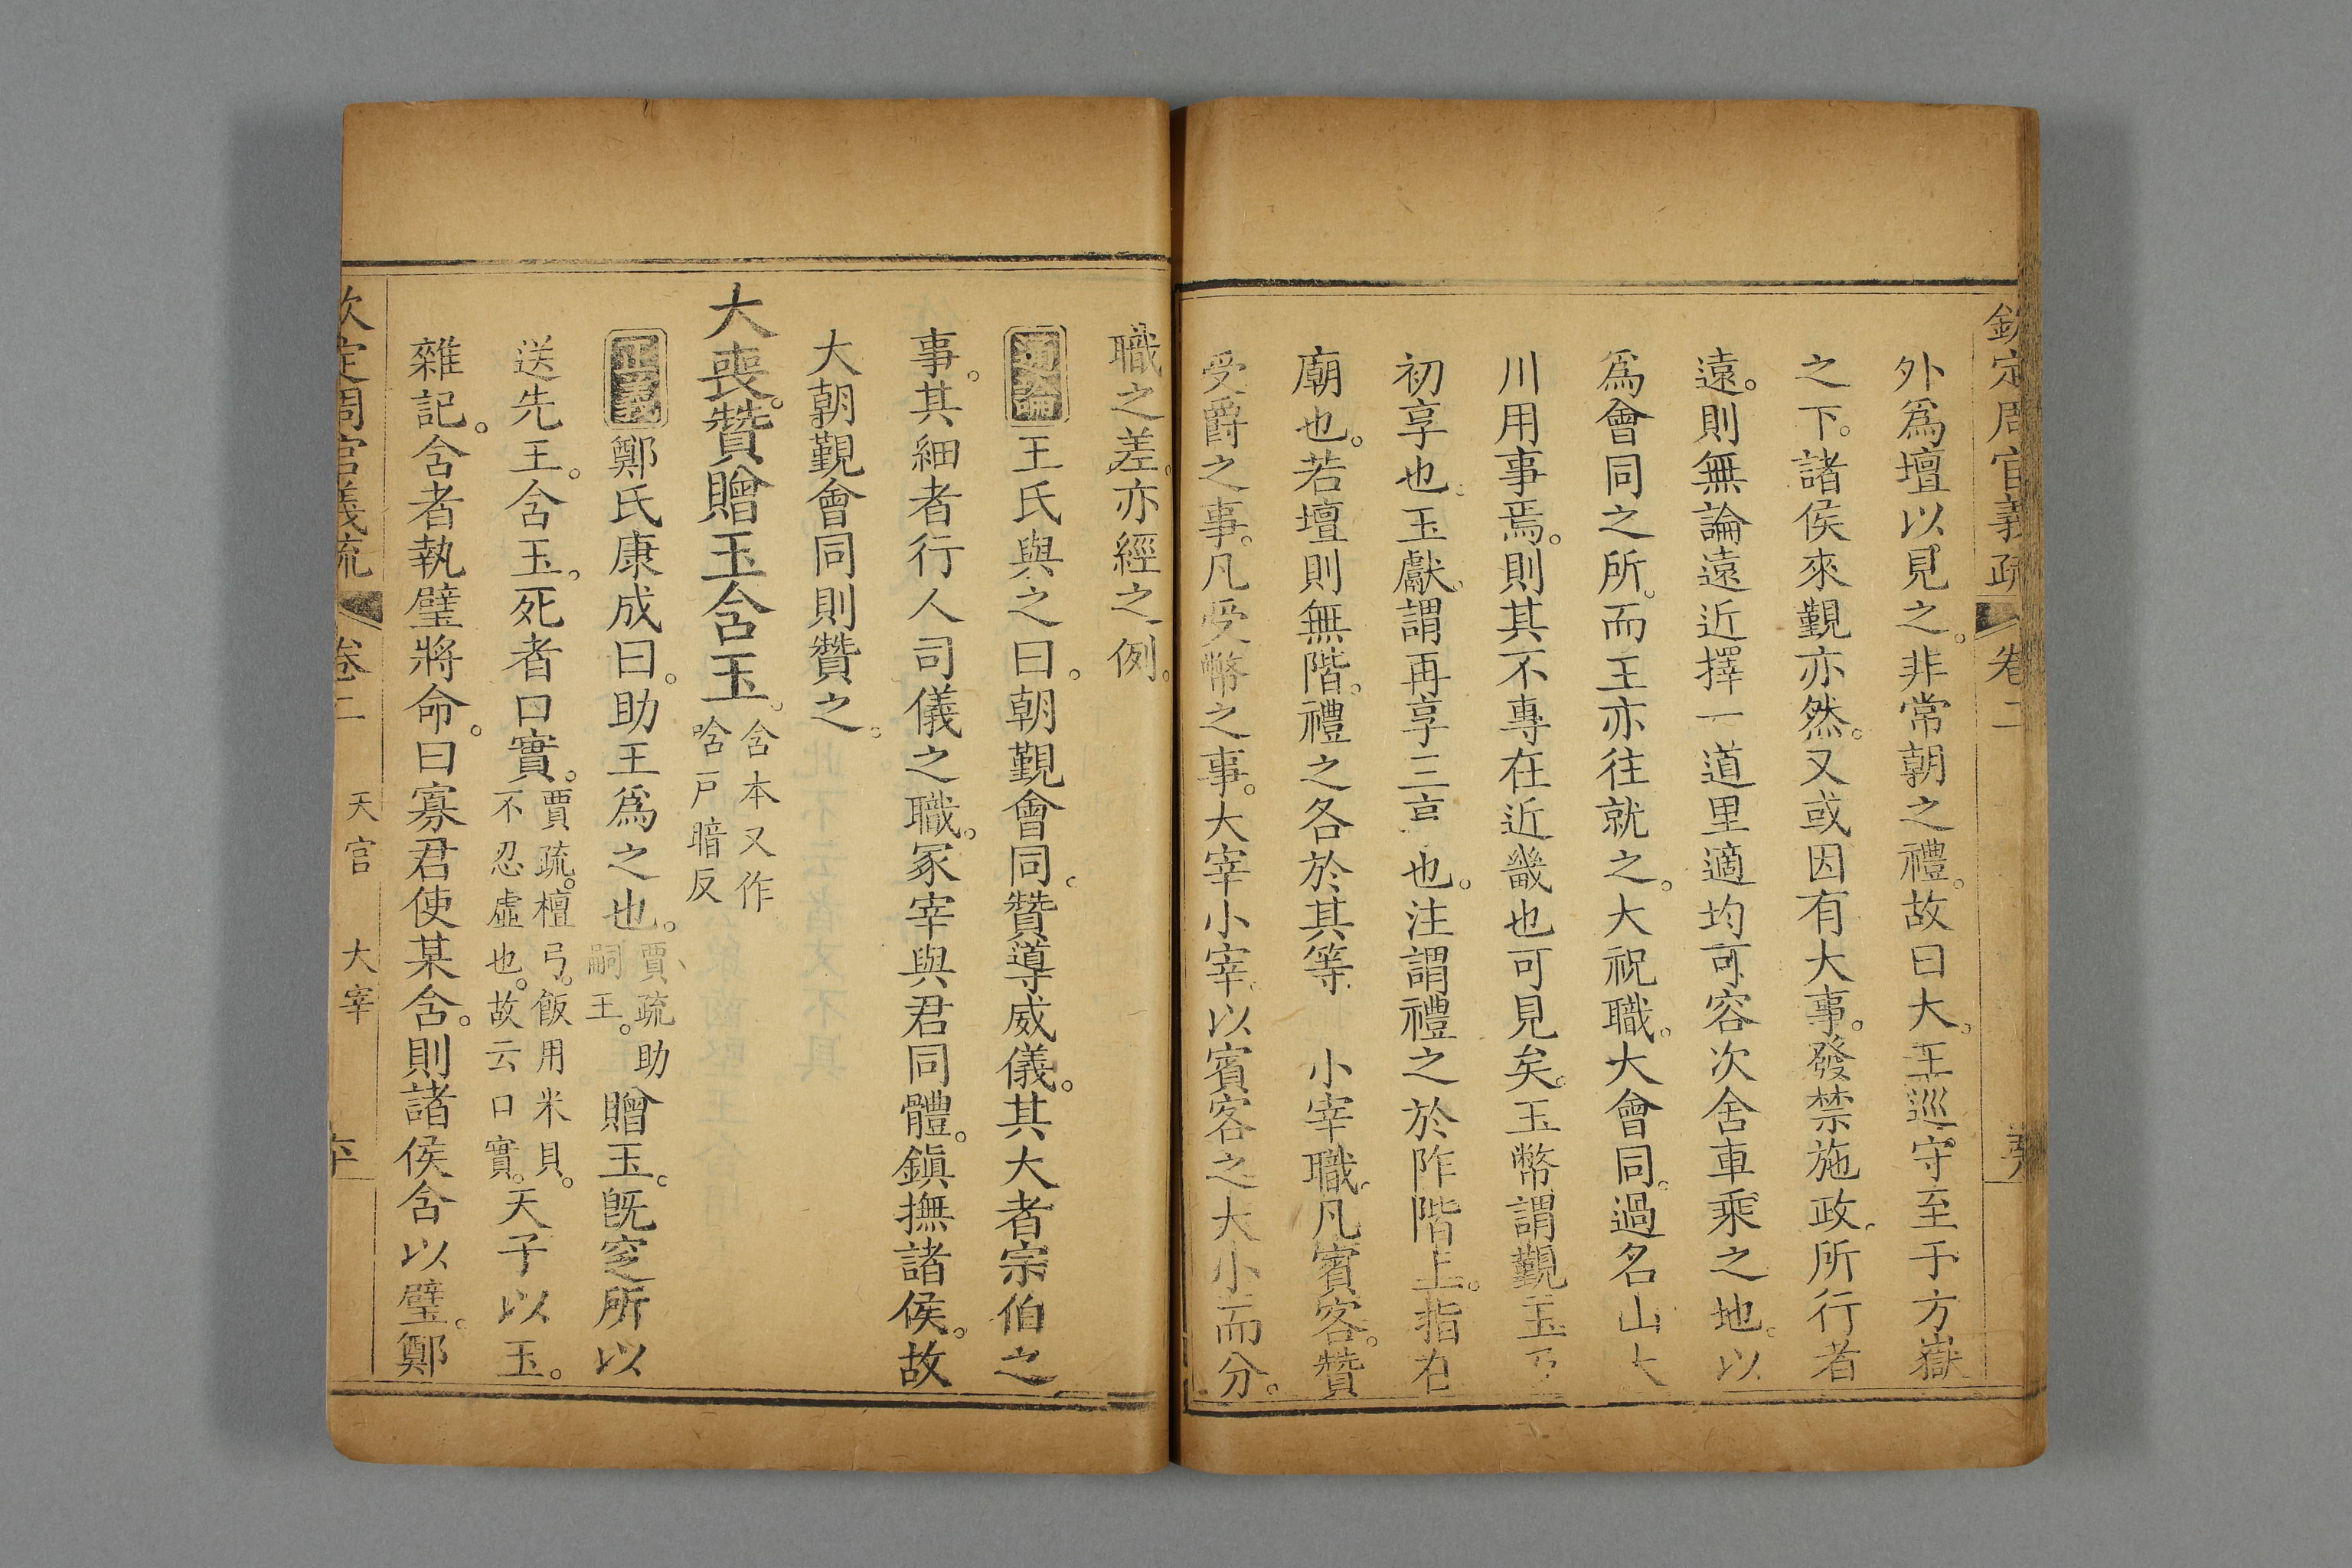 欽定周官義疏 卷二
外爲壇以見之。非常朝之禮。故曰大。王巡守至于方嶽
之下。諸侯來覲亦然。又或因有大事。發禁施政。所行者
遠。則無論遠近擇一道里適均可容次舍車乘之地。以
爲會同之所。而王亦往就之。大祝職。大會同。過名山大
川用事焉。則其不專在近畿也可見矣。玉幣謂覲玉乃
初享也。玉獻。謂再享三享也。注謂禮之於阼階上。指在
廟也。若壇則無階。禮之各於其等 小宰職。凡賓客。贊
受爵之事。凡受幣之事。大宰小宰。以賓客之大小而分。
職之差。亦經之例。
通論 王氏與之曰。朝覲會同。贊導威儀。其大者宗伯之
事。其細者行人司儀之職。冢宰與君同體。鎭撫諸侯。故
大朝覲會同則贊之。
大喪。贊贈玉含玉。含本又作
唅戶暗反
正義 鄭氏康成曰。助王爲之也。賈疏助
嗣王。贈玉。旣窆所以
送先王。含玉。死者口實。賈疏。檀弓。飯用米貝。
不忍虛也。故云口實。天子以玉。
雜記。含者執璧將命。曰寡君使某含。則諸侯含以璧。鄭
欽定周官義疏 卷二 天官 大宰